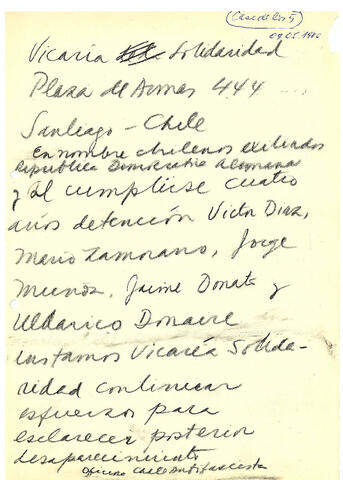 Caso de los 5
Vicaría Solidaridad
Plaza de Armas 444
Santiago - Chile
En nombre chilenos exiliados
República Democrática Alemana
y al cumplirse cuatro
años detención Victor Diaz,
Mario Zamorano, Jorge
Muñoz, Jaime Donato y
Uldarico Donaire
instamos Vicaría Solida-
ridad continuar
esfuerzos para
esclarecer posterior
desaparecimiento
Oficina Chile Antifascista